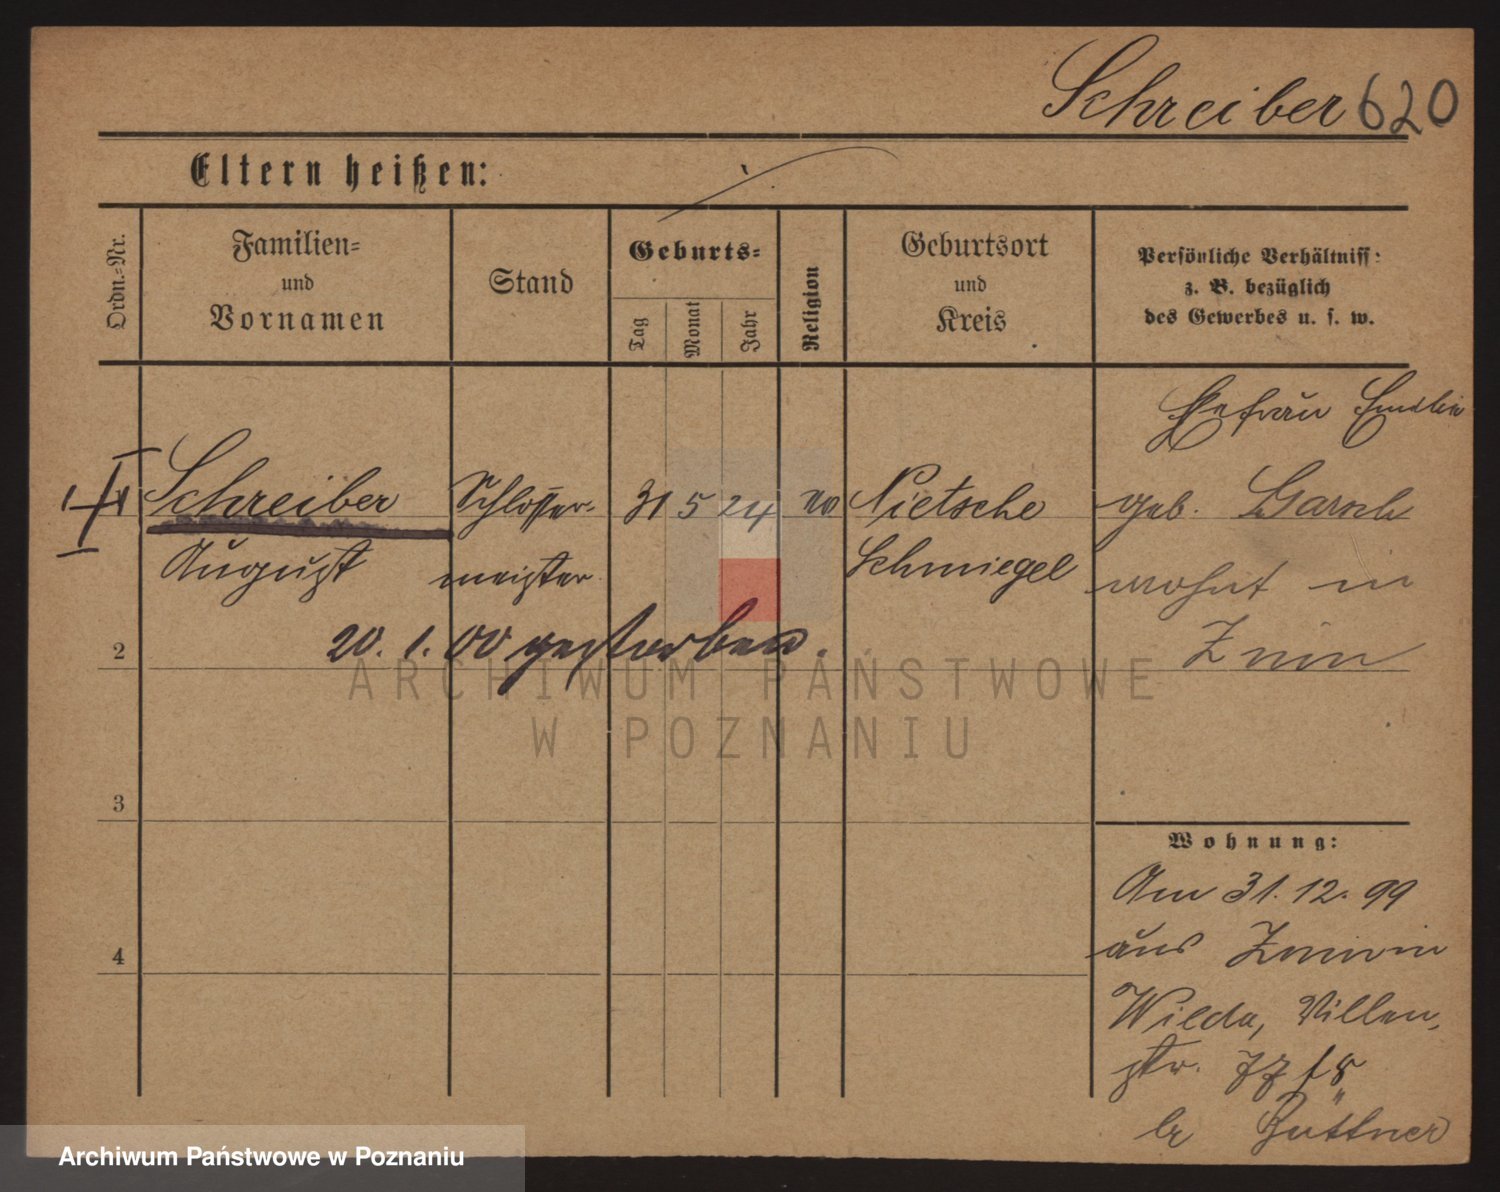 Schreiber 620
Eltern heißen:
Ordn.=Nr.
Familien=
und
Vornamen
Stand
Geburts=
Tag
Monat
Jahr
Religion
Geburtsort
und
Kreis
Persönliche Verhältniss:
z. B. bezüglich
des Gewerbes u. s. w.
Ehefrau Emilie
1 Schreiber Schlosser- 31 5 24 Nietsche geb.
August meister Schmiegel wohnt in
20. 1. 00 gestorben.
2 Znin
ARCHIWUM PAŃSTWOWE
W POZNANIU
3
Wohnung:
Am 31. 12. 99
4 aus Znin in
Wilda, Villen-
str.
b/ Büttner
Archiwum Państwowe w Poznaniu